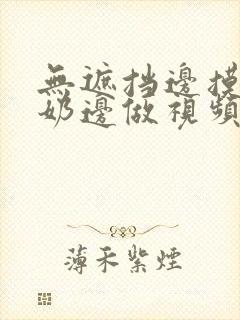 無遮挡邊摸
奶邊做視頻
薄禾紫煙